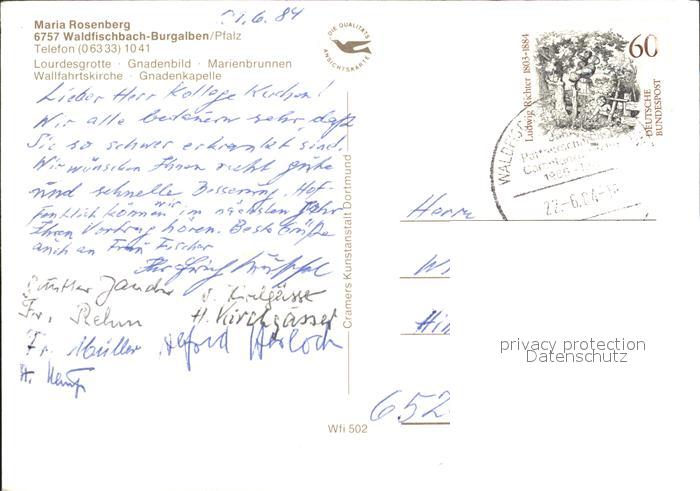 21.6.84
Maria Rosenberg
6757 Waldfischbach-Burgalben/Pfalz
Telefon (0 63 33) 10 41
Lourdesgrotte · Gnadenbild · Marienbrunnen
Wallfahrtskirche · Gnadenkapelle
DIE QUALITÄTS
ANSICHTSKARTE
Lieber Herr Kollege Kuchen!
Wir alle bedauern sehr, daß
Sie so schwer erkrankt sind.
Wir wünschen Ihnen recht gute
und schnelle Besserung. Hof-
fentlich können wir im nächsten Jahr
Ihren Vortrag hören. Beste Grüße
auch an Frau Fischer
Ihr
Günther
H. Kirchgässer
Fr. Rehm
Fr. Müller
Cramers Kunstanstalt Dortmund
Wfi 502
Ludwig Richter 1803-1884
60
DEUTSCHE
BUNDESPOST
WALDFISC
22.-6.84-
Herrn
W
Hin
652
privacy protection
Datenschutz